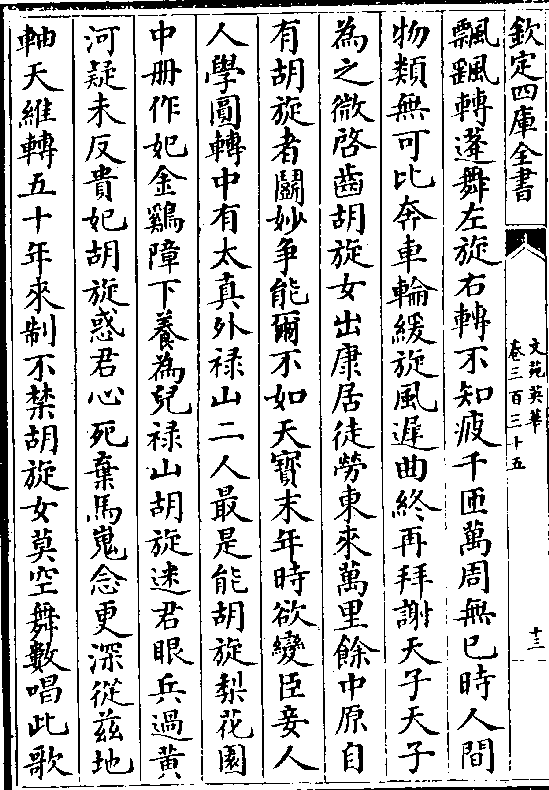 欽定四庫全書
文苑英華
卷三百三十五
十三
飄颻轉蓬舞左旋右轉不知疲千匝萬周無已時人間
物類無可比奔車輪緩旋風遲曲終再拜謝天子天子
為之微啓齒胡旋女出康居徒勞東來萬里餘中原自
有胡旋者鬬妙争能爾不如天寶末年時欲變臣妾人
人學圓轉中有太真外禄山二人最是能胡旋梨花園
中册作妃金鷄障下養為兒禄山胡旋迷君眼兵過黄
河疑未反貴妃胡旋惑君心死棄馬嵬念更深從兹地
軸天維轉五十年來制不禁胡旋女莫空舞數唱此歌